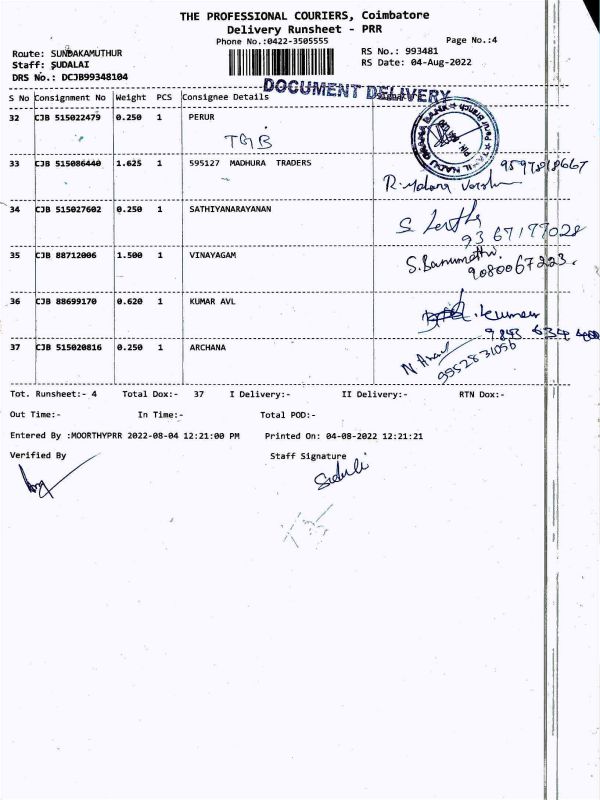 THE PROFESSIONAL COURIERS, Coimbatore
Delivery Runsheet - PRR
Phone No.:0422-3505555
Page No.:4
Route: SUNDAKAMUTHUR
RS No.: 993481
Staff: SUDALAI
RS Date: 04-Aug-2022
DRS No.: DCJB99348104
DOCUMENT DELIVERY
S No Consignment No Weight PCS Consignee Details
32 CJB 515022479 0.250 1 PERUR
TGB
33 CJB 515086440 1.625 1 595127 MADHURA TRADERS
34 CJB 515027602 0.250 1 SATHIYANARAYANAN
35 CJB 88712006 1.500 1 VINAYAGAM
S.Banumathi.
9080067223.
36 CJB 88699170 0.620 1 KUMAR AVL
.kumar
37 CJB 515020816 0.250 1 ARCHANA
9952831056
Tot. Runsheet:- 4 Total Dox:- 37 I Delivery:- II Delivery:- RTN Dox:-
Out Time:- In Time:- Total POD:-
Entered By :MOORTHYPRR 2022-08-04 12:21:00 PM Printed On: 04-08-2022 12:21:21
Verified By Staff Signature